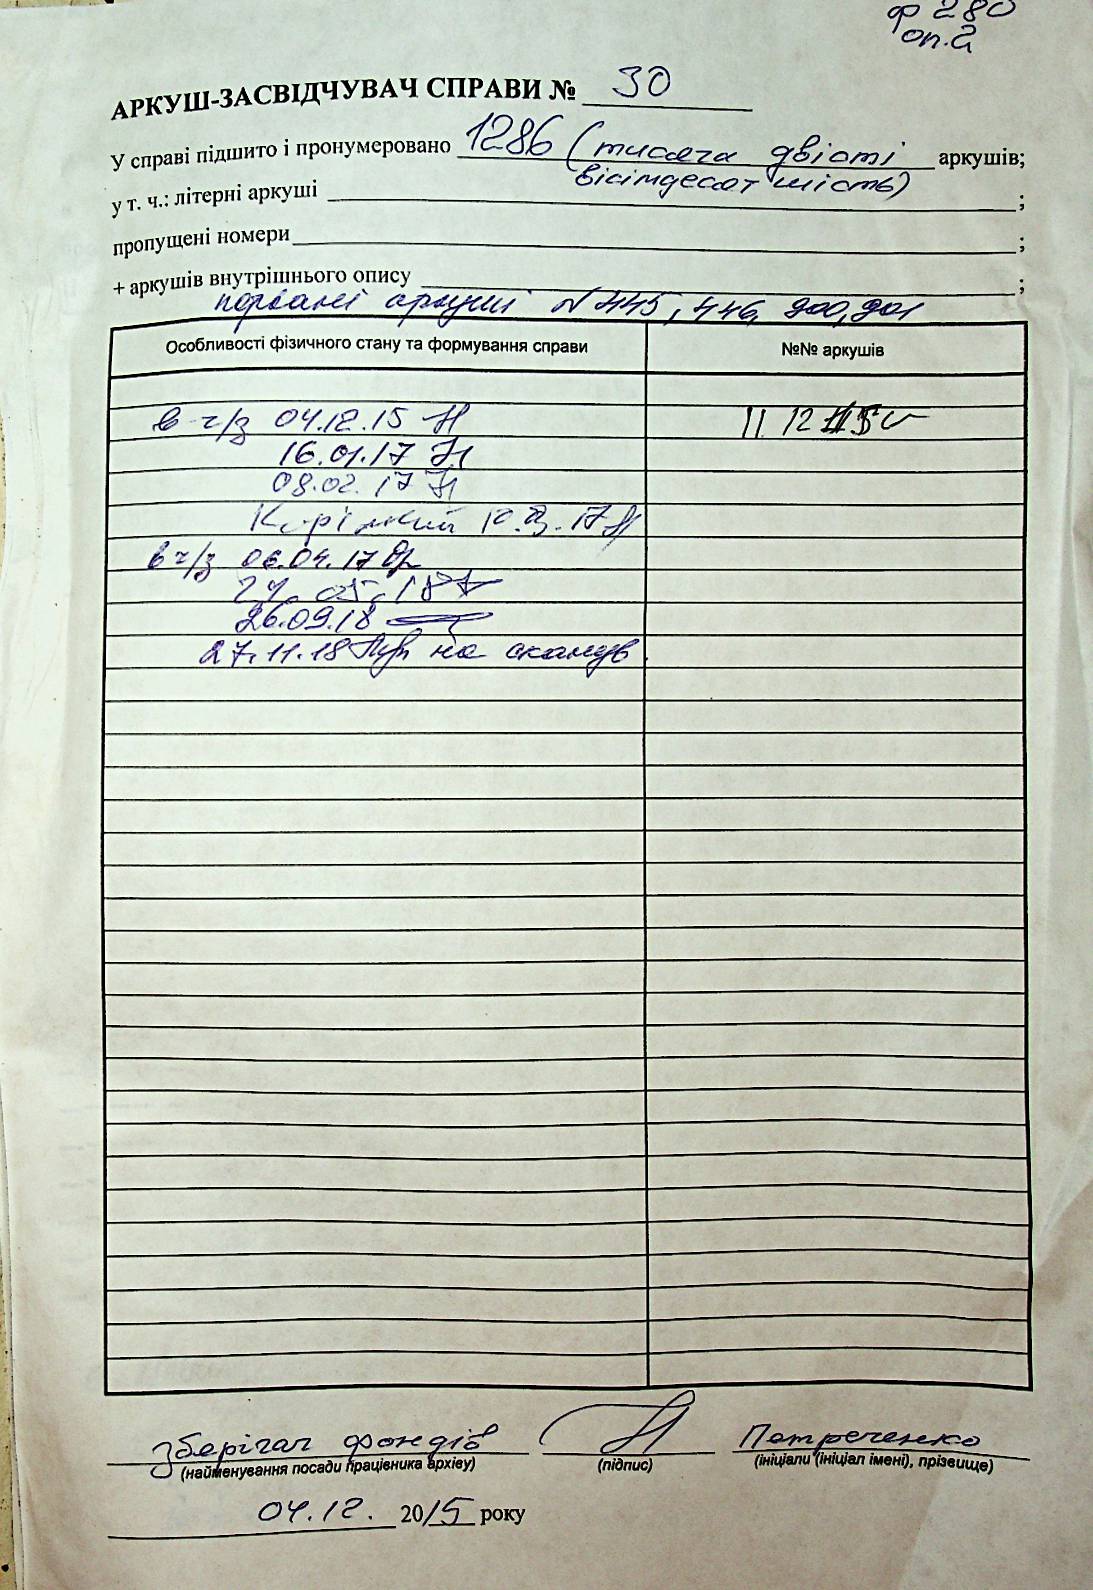 ф 280
оп. 2
АРКУШ-ЗАСВІДЧУВАЧ СПРАВИ № 30
У справі підшито і пронумеровано 1286 (тисяча двісті аркушів;
вісімдесят шість)
у т. ч.: літерні аркуші ;
пропущені номери ;
+ аркушів внутрішнього опису ;
порвані аркуші N 445, 446, 900, 901
Особливості фізичного стану та формування справи №№ аркушів
в ч/з 04.12.15 11.12
16.01.17
08.02.17
17
в ч/з 06.04.17
05.18
26.09.18
27.11.18 на сканув.
зберігач фондів Петреченко
(найменування посади працівника архіву) (підпис) (ініціали (ініціал імені), прізвище)
04.12. 2015 року